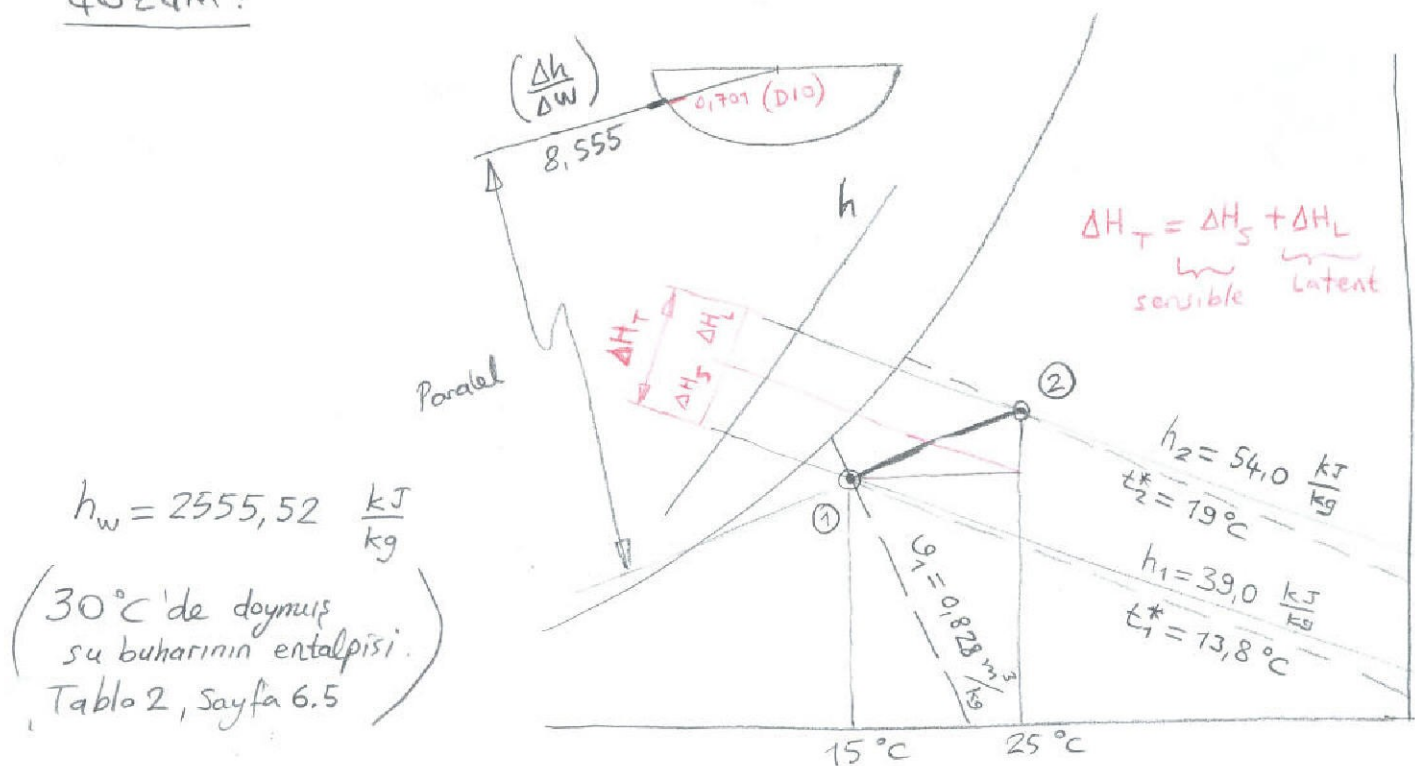 Çözüm:
(Δh/Δw)
8,555
0,701 (DIO)
h
ΔH_T = ΔH_S + ΔH_L
sensible Latent
ΔH_T
ΔH_S ΔH_L
Paralel
②
①
h₂ = 54,0 kJ/kg
t₂* = 19 °C
h₁ = 39,0 kJ/kg
t₁* = 13,8 °C
φ₁ = 0,828 m³/kg
h_w = 2555,52 kJ/kg
(30°C'de doymuş
su buharının entalpisi.
Tablo 2, Sayfa 6.5)
15 °C
25 °C